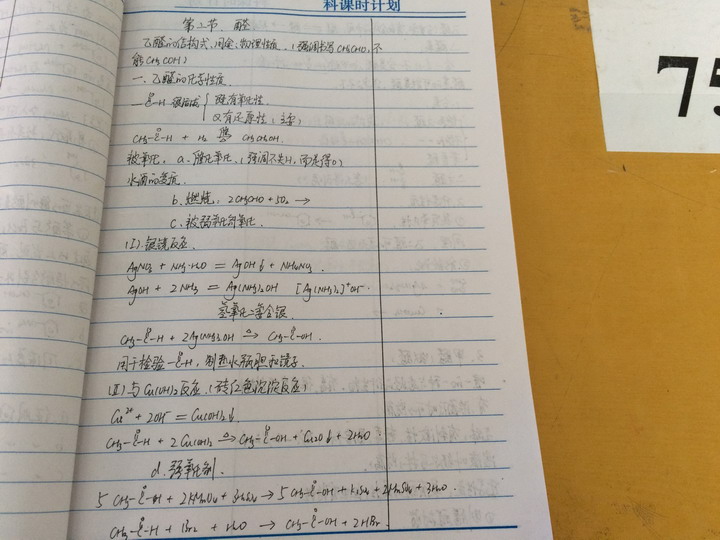 科课时计划
第二节 醛
乙醛的结构式,用途,物理性质.(强调书写CH₃CHO,不
能CH₃COH)
一.乙醛的化学性质.
-C-H 醛基 既有氧化性.
又有还原性(主要)
CH₃-C-H + H₂ CH₃CH₂OH.
被氧化, a.催化氧化.(强调不失H,而是得O)
b.燃烧, 2CH₃CHO + 5O₂ →
c.被弱氧化剂氧化.
(I).银镜反应.
AgNO₃ + NH₃·H₂O = AgOH↓ + NH₄NO₃
AgOH + 2NH₃ = Ag(NH₃)₂OH [Ag(NH₃)₂]⁺OH⁻
氢氧化二氨合银
CH₃-C-H + 2Ag(NH₃)₂OH △→ CH₃-C-OH.
用于检验-C-H,制热水瓶胆和镜子.
(II)与Cu(OH)₂反应.(砖红色沉淀反应)
Cu²⁺ + 2OH⁻ = Cu(OH)₂↓.
CH₃-C-H + 2Cu(OH)₂ △→ CH₃-C-OH + Cu₂O↓ + 2H₂O
d.强氧化剂.
5 CH₃-C-H + 2KMnO₄ + 3H₂SO₄ → 5 CH₃-C-OH + K₂SO₄ + 2MnSO₄ + 3H₂O.
CH₃-C-H + Br₂ + H₂O → CH₃-C-OH + 2HBr.
75